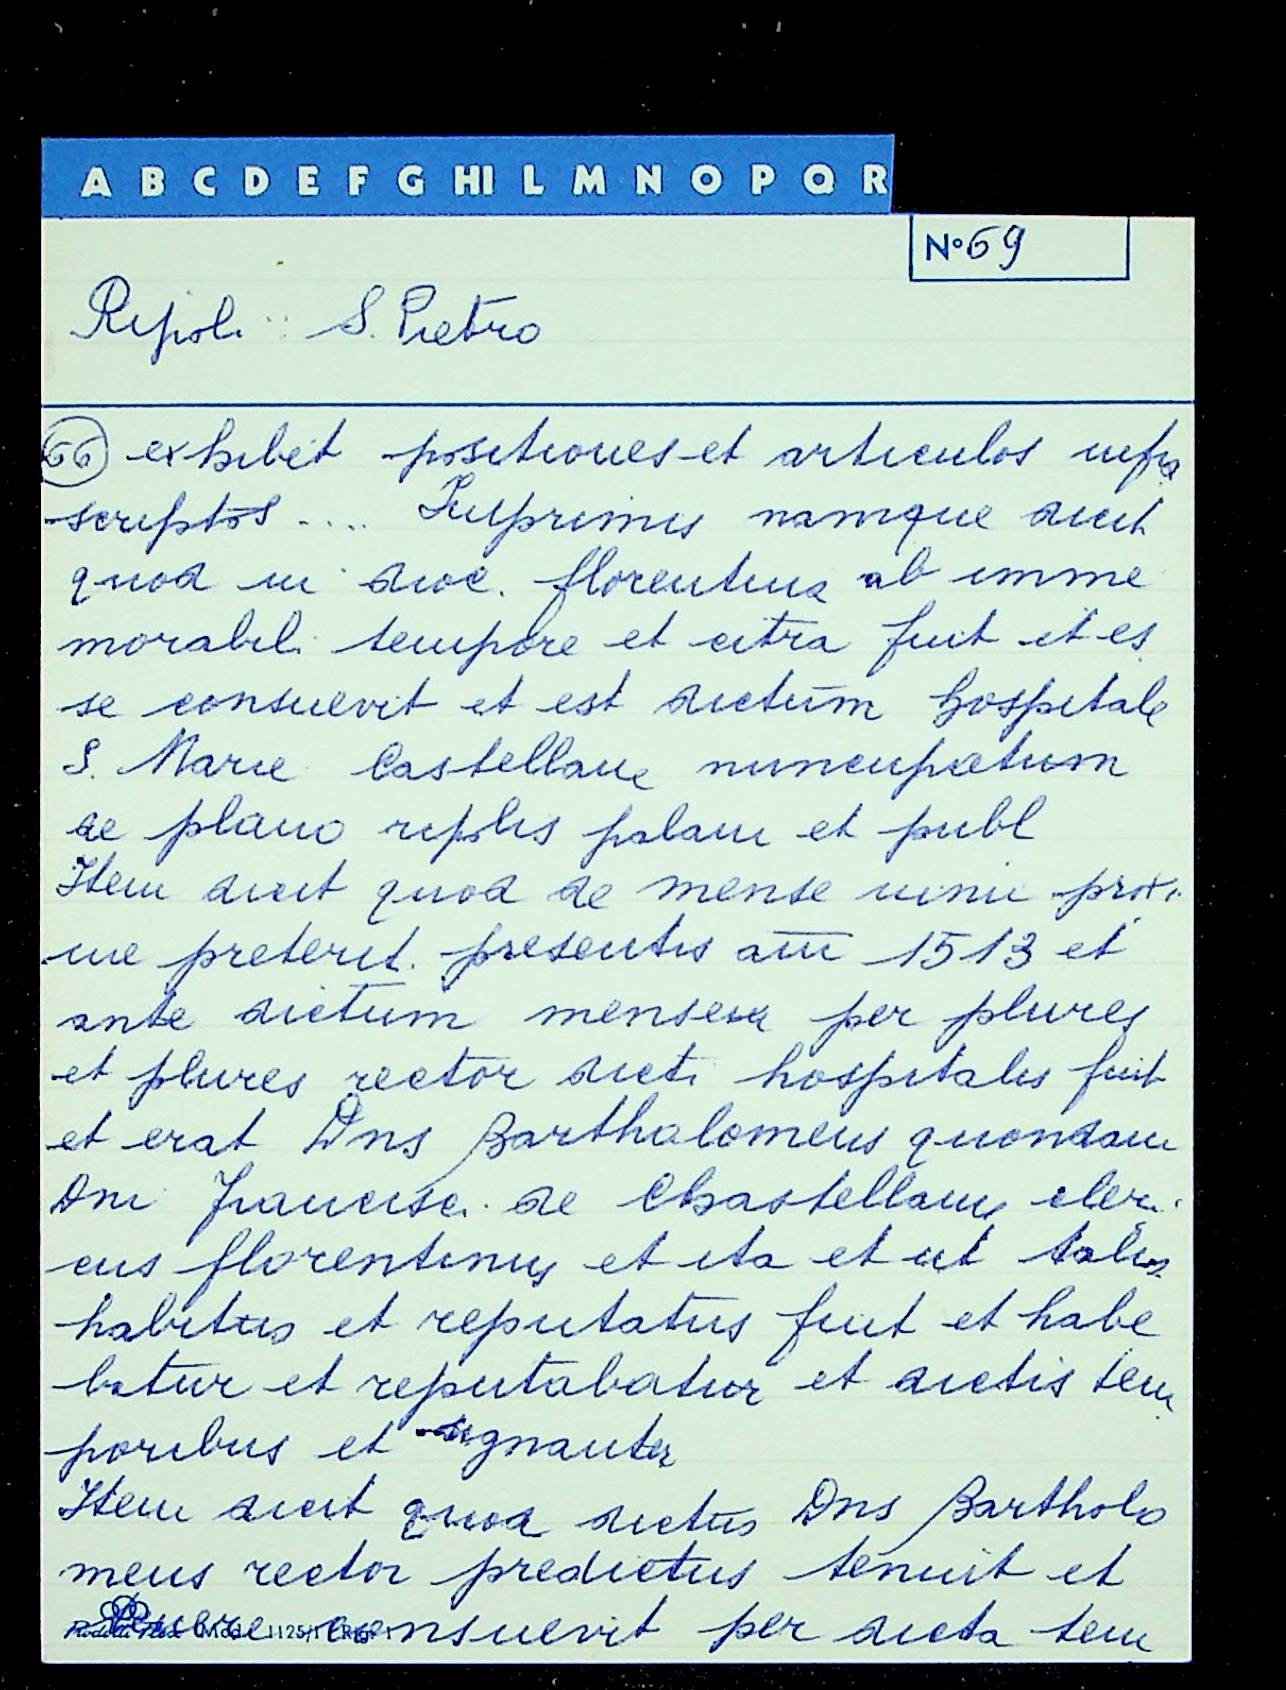 A B C D E F G HI L M N O P Q R
N° 69
Ripoli : S. Pietro
66 exhibet positiones et articulos infra
scriptos .... Inprimis namque dicit
quod in dioc. florentina ab imme
morabili tempore et citra fuit et es
se consuevit et est dictum hospitale
S. Marie Castellane nuncupatum
de plano ripolis palam et publ
Item dicit quod de mense iunii proxi
me preterit. presentis anni 1513 et
ante dictum mensem per plures
et plures rector dicti hospitalis fuit
et erat Dns Bartholomeus quondam
Dni Francisci de Chastellanis cleri
cus florentinus et ita et ut talis
habitus et reputatus fuit et habe
batur et reputabatur et dictis tem
poribus et signanter
Item dicit quod dictus Dns Bartholo
meus rector predictus tenuit et
tenere consuevit per dicta tem
Mod. 1125/1 Rig. 1